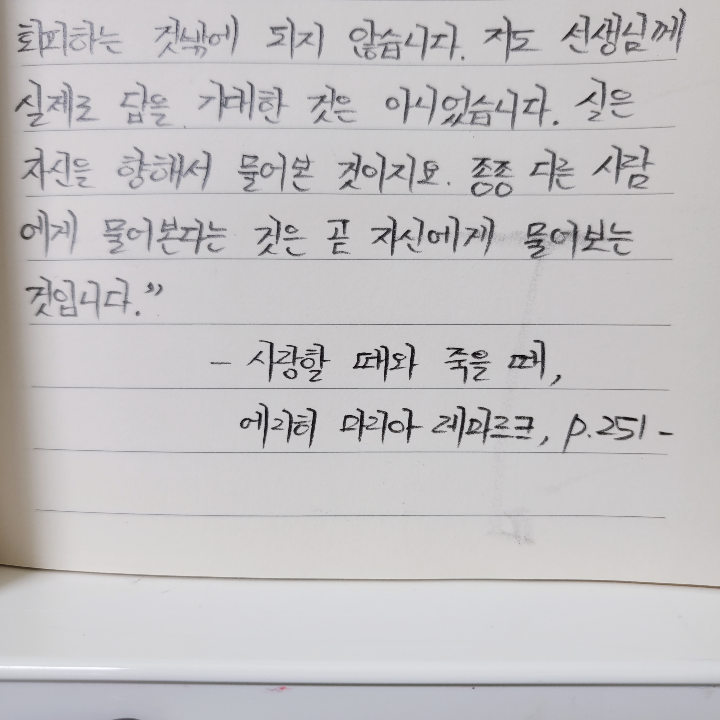 회피하는 것밖에 되지 않습니다. 저도 선생님께
실제로 답을 기대한 것은 아니었습니다. 실은
자신을 향해서 물어본 것이지요. 종종 다른 사람
에게 물어본다는 것은 곧 자신에게 물어보는
것입니다."
- 사랑할 때와 죽을 때,
에리히 마리아 레마르크, p.251 -